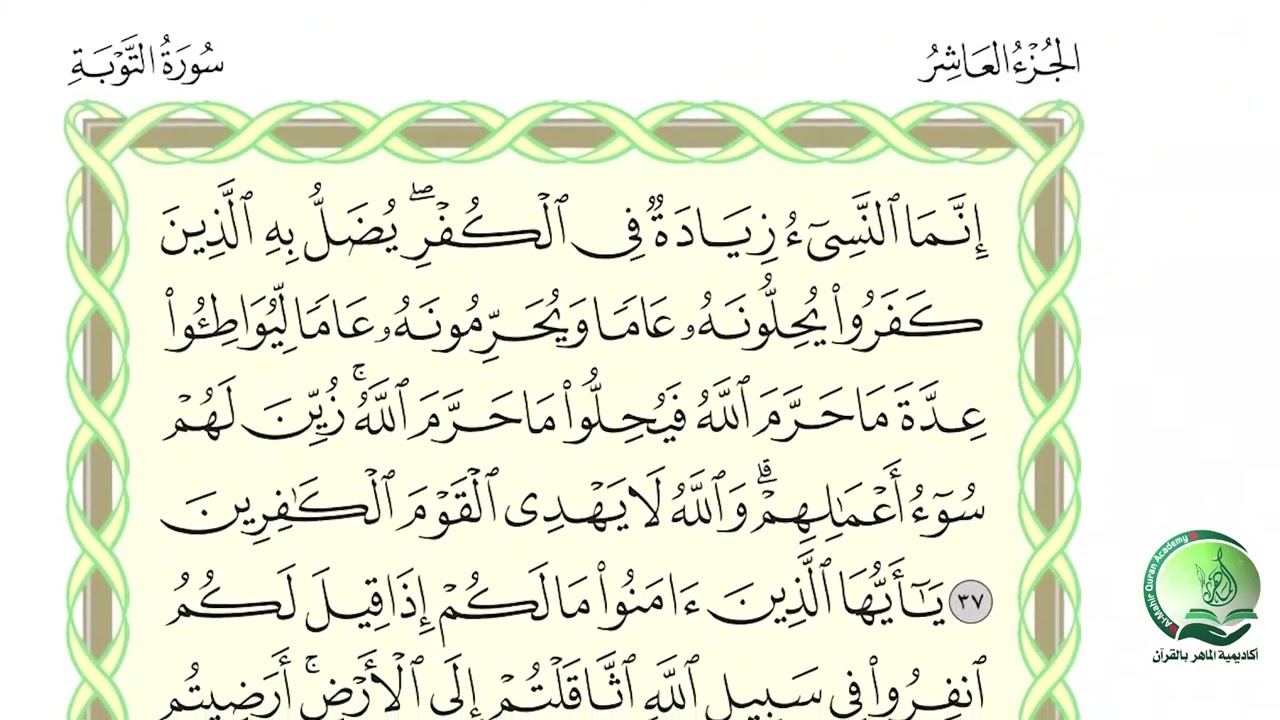 الجُزْءُ العَاشِرُ
سُورَةُ التَّوْبَةِ
إِنَّمَا ٱلنَّسِىٓءُ زِيَادَةٌ فِى ٱلْكُفْرِ ۖ يُضَلُّ بِهِ ٱلَّذِينَ
كَفَرُوا۟ يُحِلُّونَهُۥ عَامًا وَيُحَرِّمُونَهُۥ عَامًا لِّيُوَاطِـُٔوا۟
عِدَّةَ مَا حَرَّمَ ٱللَّهُ فَيُحِلُّوا۟ مَا حَرَّمَ ٱللَّهُ ۚ زُيِّنَ لَهُمْ
سُوٓءُ أَعْمَـٰلِهِمْ ۗ وَٱللَّهُ لَا يَهْدِى ٱلْقَوْمَ ٱلْكَـٰفِرِينَ
٣٧ يَـٰٓأَيُّهَا ٱلَّذِينَ ءَامَنُوا۟ مَا لَكُمْ إِذَا قِيلَ لَكُمُ
ٱنفِرُوا۟ فِى سَبِيلِ ٱللَّهِ ٱثَّاقَلْتُمْ إِلَى ٱلْأَرْضِ ۚ أَرَضِيتُم
Al-Mahir Quran Academy
الماهر
أكاديمية الماهر بالقرآن